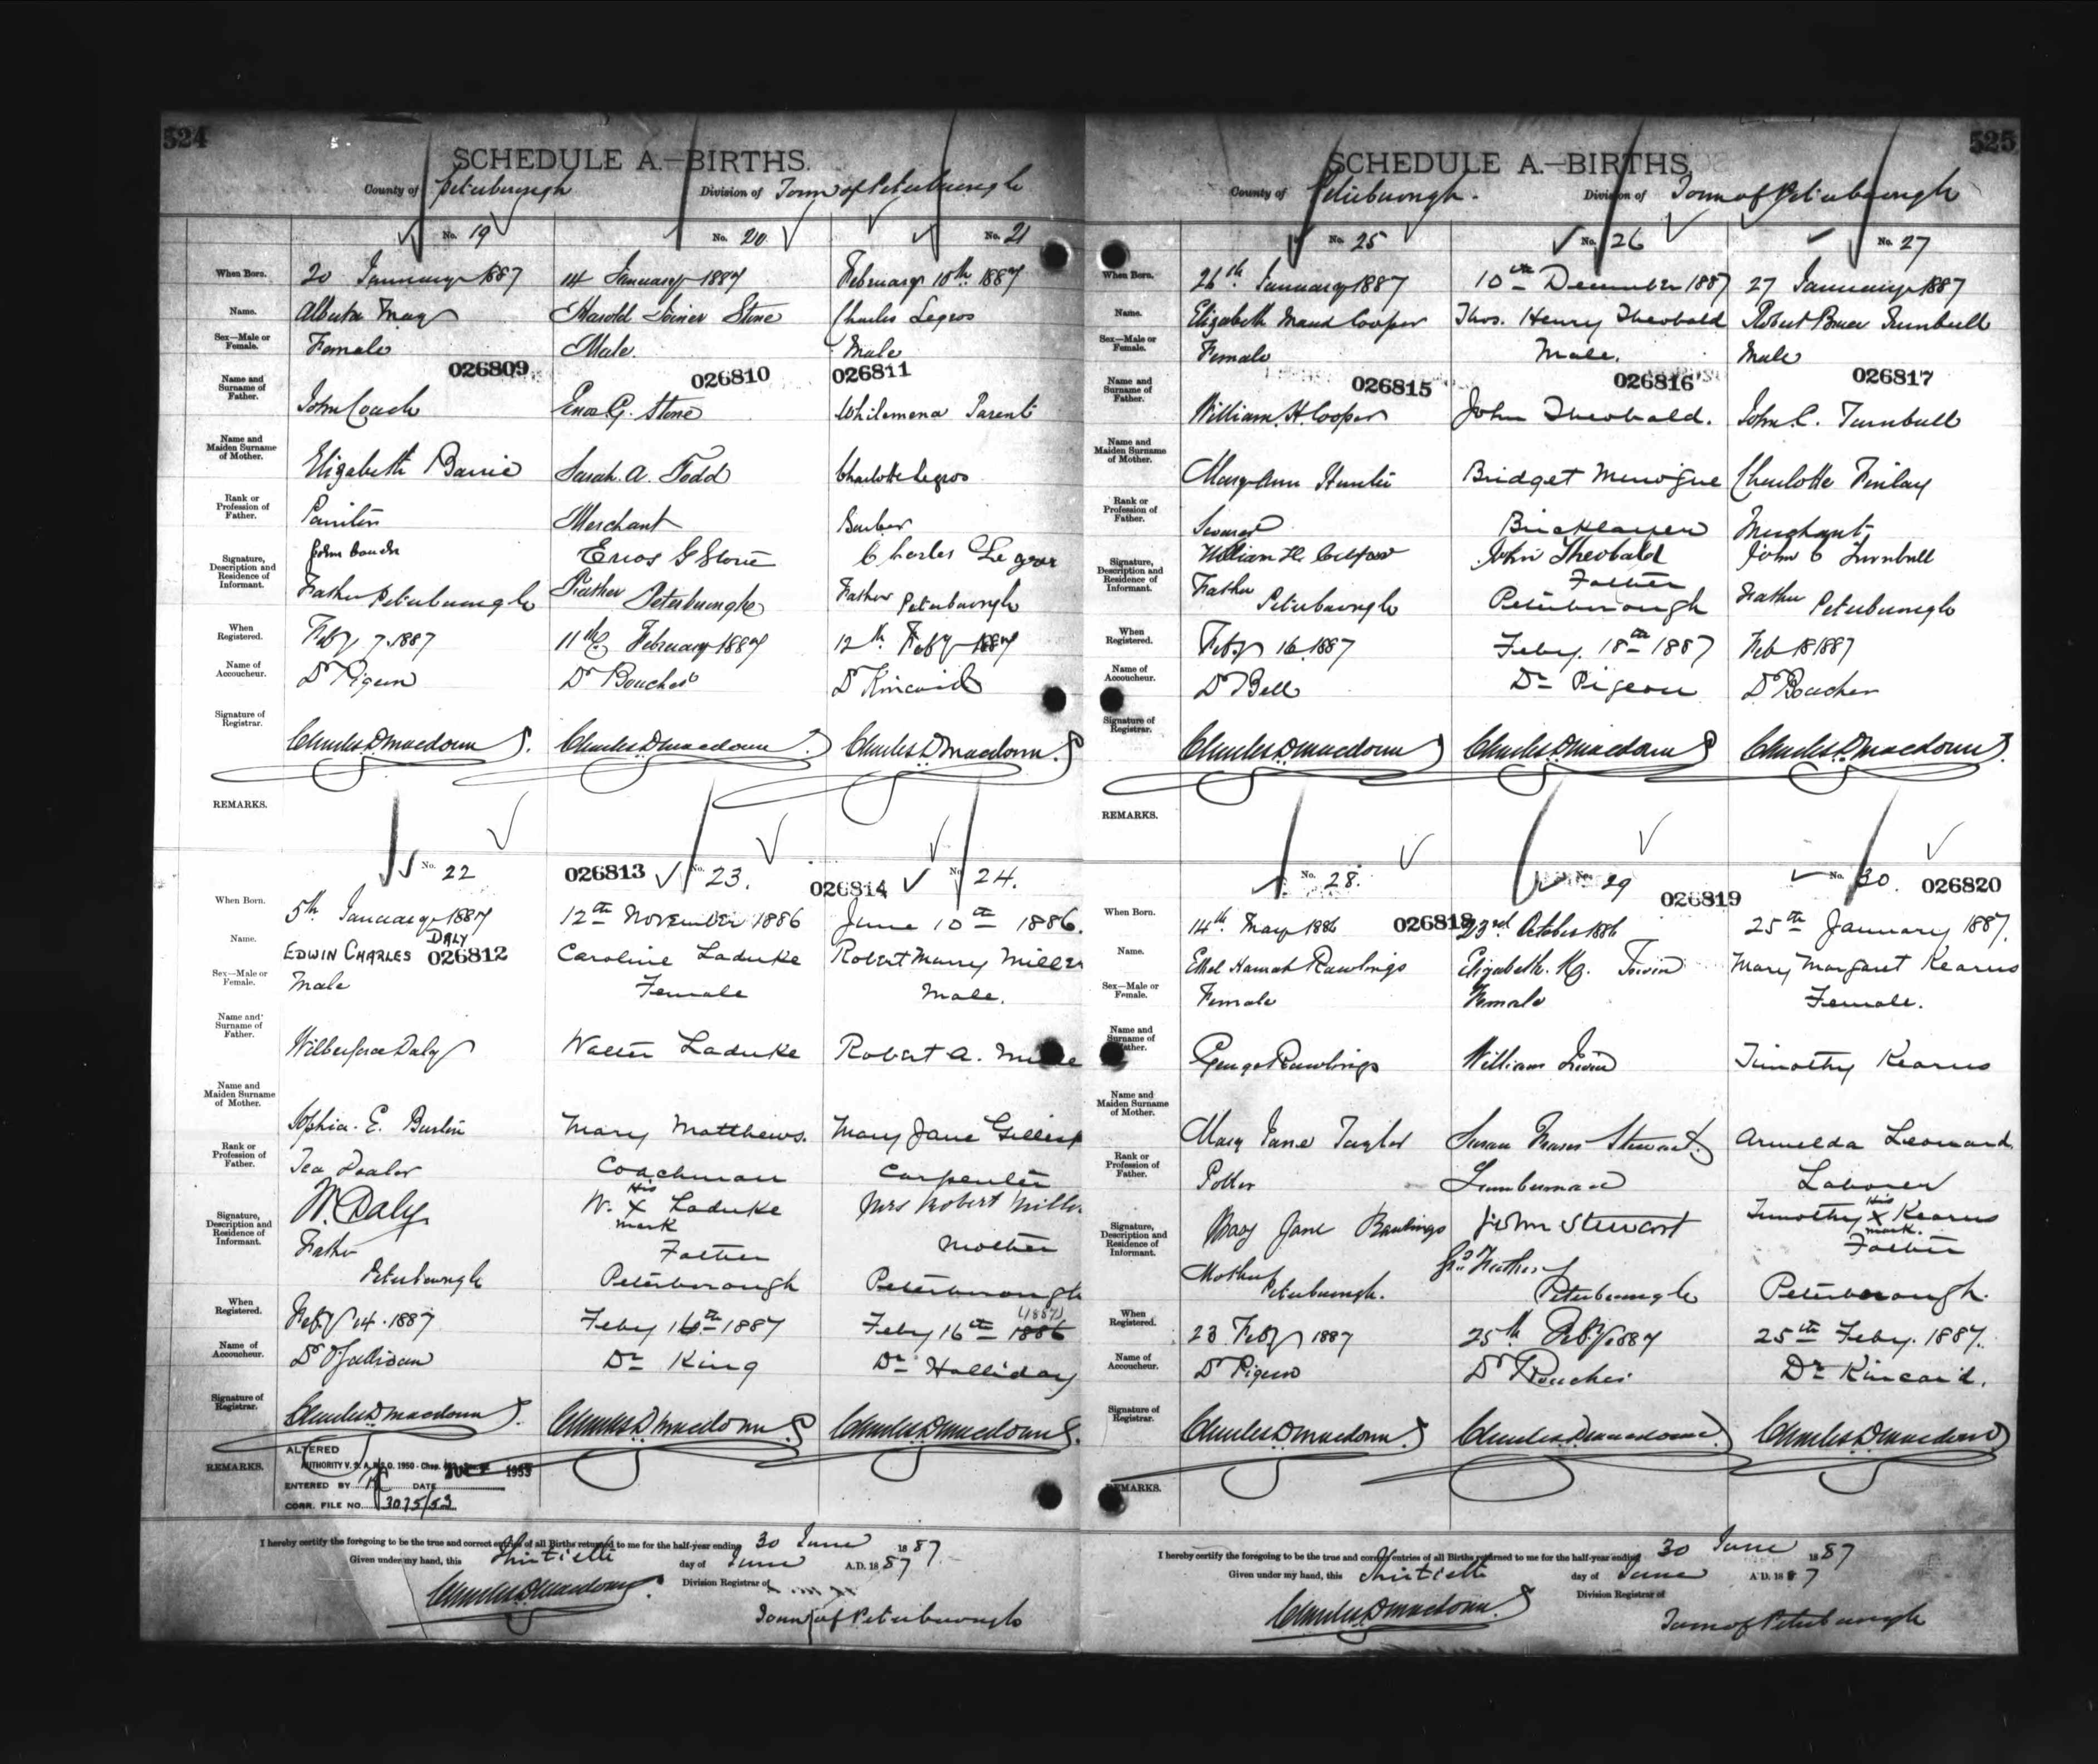 524
SCHEDULE A.—BIRTHS.
County of Peterborough Division of Town of Peterborough
No. 19 No. 20 No. 21
When Born. 20 January 1887 14 January 1887 February 10th 1887
Name. Alberta May Harold Joiner Stone Charles Legros
Sex—Male or Female. Female Male. Male
026809 026810 026811
Name and Surname of Father. John Couch Enos G. Stone Whilemena Parenti
Name and Maiden Surname of Mother. Elizabeth Barrie Sarah. A. Todd Charlotte Legros
Rank or Profession of Father. Painter Merchant Barber
Signature, Description and Residence of Informant. John Couch Enos G Stone Charles Le gros
Father Peterborough Father Peterborough Father Peterborough
When Registered. Feby 7 1887 11th February 1887 12th Feby 1887
Name of Accoucheur. Dr Pigeon Dr Boucher Dr Kincaid
Signature of Registrar. Charles D. Macdonn Charles D. Macdonn Charles D. Macdonn
REMARKS.
No. 22 026813 No. 23. 026814 No. 24.
When Born. 5th January 1887 12th November 1886 June 10th 1886.
DALY
Name. EDWIN CHARLES 026812 Caroline Laduke Robert Murry Miller
Sex—Male or Female. Male Female Male.
Name and Surname of Father. Wilberforce Daly Walter Laduke Robert A.
Name and Maiden Surname of Mother. Sophia. E. Mary Matthews. Mary Jane
Rank or Profession of Father. Tea Dealer Coachman Carpenter
Signature, Description and Residence of Informant. W. Daly. W. his X mark Laduke Mrs Robert Miller
Father Father Mother
Peterborough Peterborough Peterborough
When Registered. Feby 14. 1887 Feby 16th 1887 Feby 16th 1886 (1887)
Name of Accoucheur. Dr O'Sullivan Dr King Dr Halliday
Signature of Registrar. Charles D Macdonn Charles D Macdonn Charles D Macdonn
REMARKS.
ALTERED
AUTHORITY V. S. A. R.S.O. 1950 - Chap. 1953
ENTERED BY DATE
CORR. FILE NO. 3075/53
I hereby certify the foregoing to be the true and correct entries of all Births returned to me for the half-year ending 30 June 1887.
Given under my hand, this Thirtieth day of June A.D. 1887
Charles D Macdonn Division Registrar of
Town of Peterborough
525
SCHEDULE A.—BIRTHS.
County of Peterborough. Division of Town of Peterborough
No. 25 No. 26 No. 27
When Born. 26th January 1887 10th December 1887 27 January 1887
Name. Elizabeth Maud Cooper Thos. Henry Theobald Robert Bruce Turnbull
Sex—Male or Female. Female Male. Male
026815 026816 026817
Name and Surname of Father. William. H. Cooper John Theobald. John. C. Turnbull
Name and Maiden Surname of Mother. Mary Ann Hunter Bridget Charlotte Finlay
Rank or Profession of Father. Bricklayer Merchant
Signature, Description and Residence of Informant. William H. John Theobald John C Turnbull
Father Peterborough Father Peterborough Father Peterborough
When Registered. Feby 16 1887 Feby. 18th 1887 Feb 18 1887
Name of Accoucheur. Dr Bell Dr Pigeon Dr Boucher
Signature of Registrar. Charles D. Macdonn Charles D. Macdonn Charles D. Macdonn
REMARKS.
No. 28. No. 29 026819 No. 30. 026820
When Born. 14th May 1886 026818 23rd October 1886 25th January 1887.
Name. Ethel Hannah Rawlings Elizabeth. Irwin Mary Margaret Kearns
Sex—Male or Female. Female Female Female.
Name and Surname of Father. George Rawlings William Irwin Timothy Kearns
Name and Maiden Surname of Mother. Mary Jane Taylor Susan Fraser Stewart. Armelda Leonard
Rank or Profession of Father. Potter Lumberman Laborer
Signature, Description and Residence of Informant. Mary Jane Rawlings John Stewart Timothy his X mark. Kearns
Mother Peterborough. Gd. Father Peterborough Father Peterborough.
When Registered. 23 Feby 1887 25th Feby 1887 25th Feby. 1887.
Name of Accoucheur. Dr Pigeon Dr Boucher Dr Kincaid.
Signature of Registrar. Charles D Macdonn Charles D Macdonn Charles D Macdonn
REMARKS.
I hereby certify the foregoing to be the true and correct entries of all Births returned to me for the half-year ending 30 June 1887
Given under my hand, this Thirtieth day of June A.D. 1887
Charles D Macdonn Division Registrar of
Town of Peterborough